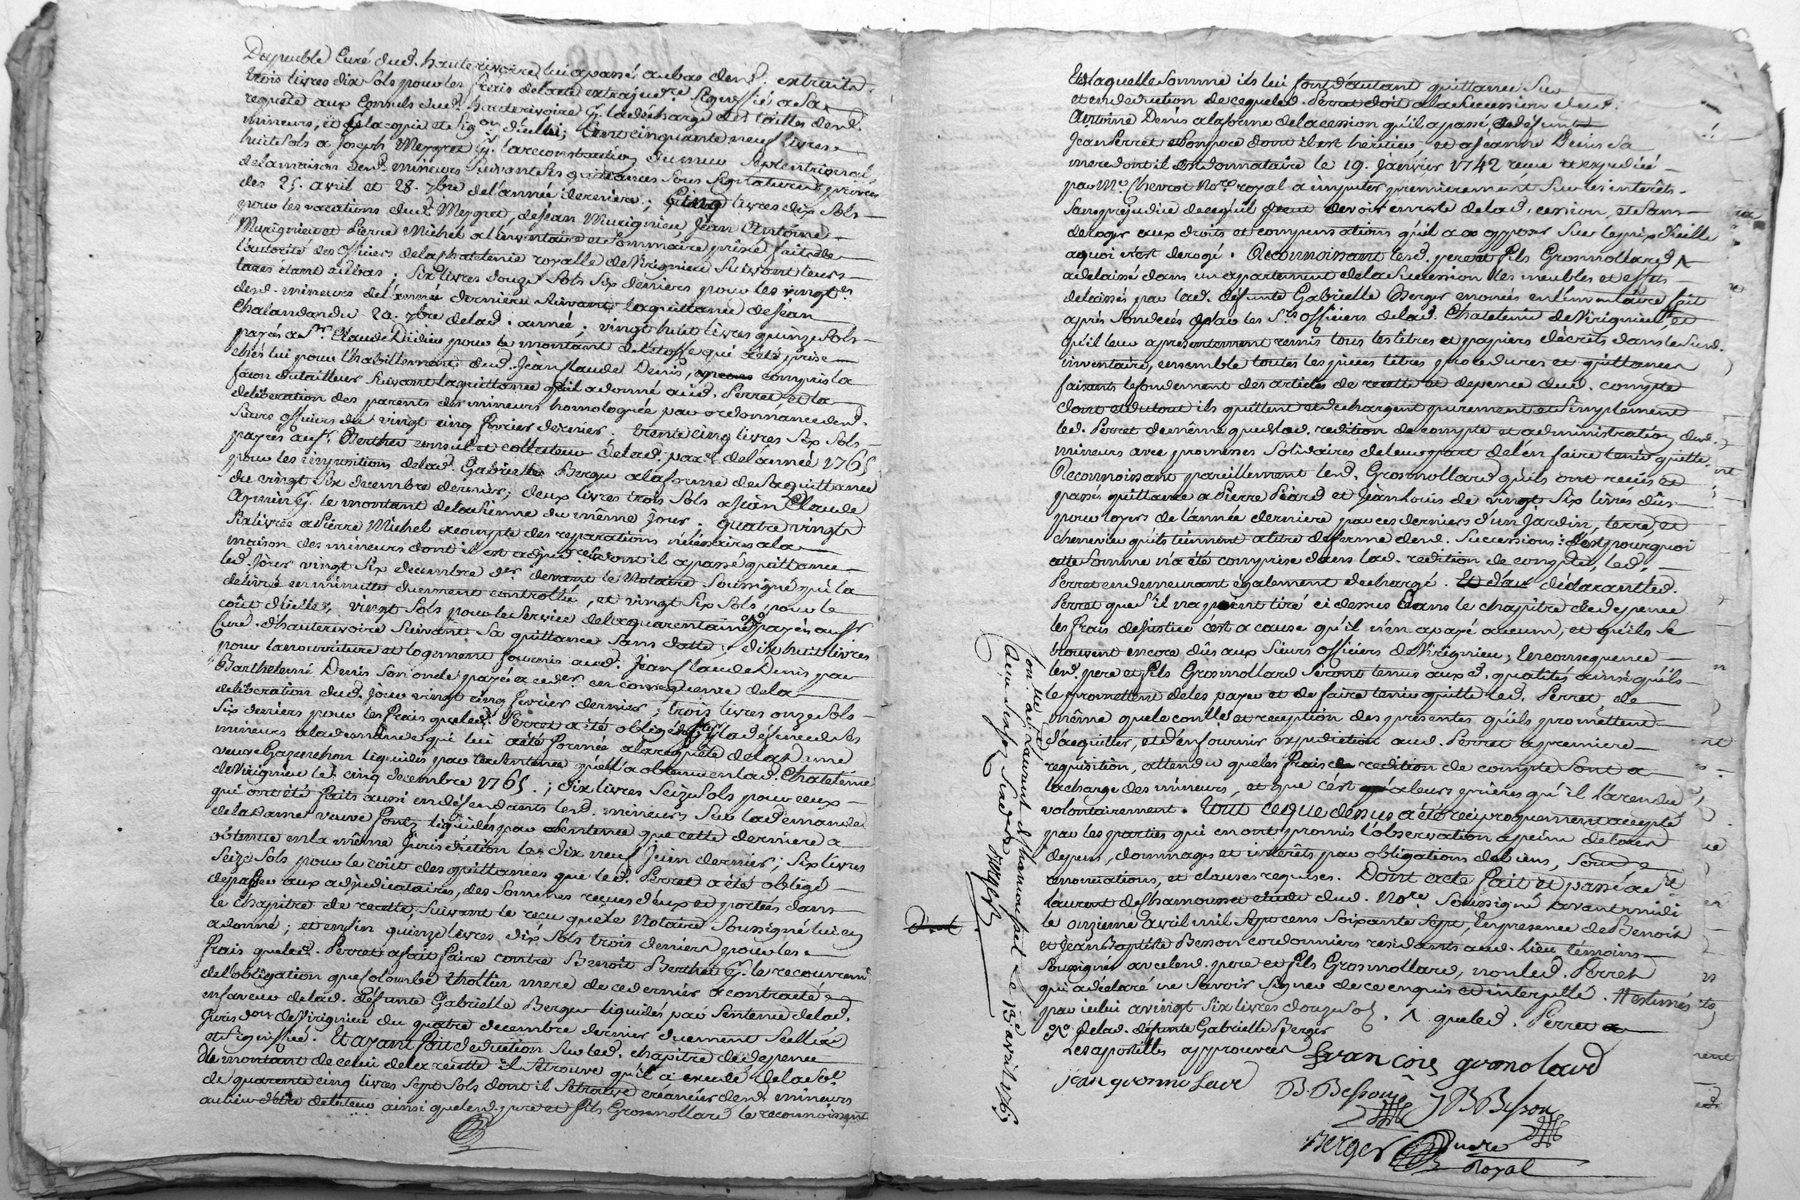 Curé dud. hauterivoire lui a passé au bas dud. extrait
trois livres dix sols pour les frais de lacte extrajud.re signiffié a sa
requete aux consuls dud. hauterivoire p.r la décharge des tailles desd.
mineurs, et de la coppie et sig.on d'icelui; cent cinquante neuf livres
huit sols a Joseph Meygret p.r la reconstruction du mur septentrional
de la maison desd. mineurs suivant les quittances sous signatures privées
des 25. avril et 28. 7bre de l'année derniere; cinq livres dix sols
pour les vacations dud. Meygret, de Jean Murignieu Jean Antoine
Murignieu et Pierre Michel a l'inventaire et sommaire prise faits de
l'autorité des officiers de la chatelenie royalle de Virignieu suivant leurs
taxes étant au bas; six livres douze sols six deniers pour les vingt.es
desd. mineurs de l'année derniere suivant la quittance de Jean
Chalandon du 20. 7bre de lad. année; vingt huit livres quinze sols
payés a S.r Claude Didier pour le montant de l'etoffe qui a été prise
chés lui pour l'habillement dud. Jean Claude Denis, compris la
façon du tailleur suivant la quittance qu'il a donné aud. Perret et la
deliberation des parents des mineurs homologuée par ordonnance desd.
sieurs officiers du vingt cinq fevrier dernier; trente cinq livres six sols
payés au S.r Berthet consul et collecteur de lad. parr.e de l'année 1765
pour les impositions de lad. Gabrielle Berger a la forme de sa quittance
du vingt six decembre dernier; deux livres trois sols a Jean Claude
p.r le montant de la sienne du même jour; quatre vingt
six livres a Pierre Michel acompte des reparations nécéssaires a la
maison des mineurs dont il est adjud.re dont il a passé quittance
led. jour vingt six decembre d.er devant le Notaire soussigné qui la
delivré en minutte duement controllée, et vingt six sols pour le
coût d'icelle; vingt sols pour le service de la quarantaine payés au S.r
Curé d'hauterivoire suivant sa quittance sans datte; dix huit livres
pour la nourriture et logement fournis aud. Jean Claude Denis par
Barthelemi Denis son oncle payés a ce der.er en consequence de la
deliberation dud. jour vingt cinq fevrier dernier; trois livres onze sols
six deniers pour les frais que led. Perret a été obligé de la défence des
mineurs a la demande qui lui a été formée a la requête de la
veuve liquidés par la sentence qu'ell'a obtenu en lad. Chatelenie
de Virignieu le cinq decembre 1765.; dix livres seize sols pour ceux
qui ont été faits aussi en défendants lesd. mineurs sur la demande
de la Dame veuve liquidés par sentence que cette derniere a
obtenue en la même Jurisdiction le dix neuf Juin dernier; six livres
seize sols pour le coût des quittances que led. Perret a été obligé
de passer aux adjudicataires, des sommes reçues d'eux et portées dans
le chapitre de recette, suivant le reçu que le Notaire soussigné lui en
a donné; et enfin quinze livres dix sols trois deniers pour les
frais que led. Perret a fait faire contre Benoit Berthet p.r le recouvrem.t
de l'obligation que Colombe Thollin mere de ce dernier a contracté
en faveur de lad. défunte Gabrielle Berger liquidés par sentence de lad.
Jurisd.on de Virignieu du quatre decembre dernier duement scellée
et signiffiée. Et ayant fait deduction sur led. chapitre de depence
du montant de celui de la recette il se trouve qu'il a excedé de la so.e
de quarante cinq livres sept sols dont il se trouve créancier desd. mineurs
au lieu d'etre debiteur ainsi que lesd. pere et fils Grosmollard le reconnoissent
De laquelle somme ils lui font d'autant quittance sur
et en deduction de ce que led. Perret doit a la succession dud.
Antoine Denis a la forme de la cession qu'il a passé
Jean Perret son pere dont il est heritier et a Jeanne Denis sa
mere dont il est donnataire le 19. Janvier 1742 reçue et expediée
par M.e Not.re royal a imputer premierement sur les interêts
sans prejudice de ce qu'il peut devoir en reste de lad. cession, et sans
deroger aux droits et compensations qu'il a a opposer sur le prix d'icelle
a quoi n'est derogé. Reconnoissant lesd. pere et fils Grosmollard
a delaissé dans un apartement de la succession les meubles et effets
delaissés par lad. défunte Gabrielle Berger enoncés en l'inventaire fait
après son decés par les S.rs officiers de lad. Chatelenie de Virignieu, et
qu'il leur a presentement remis tous les titres et papiers décrits dans le susd.
inventaire, ensemble toutes les pieces titres procedures et quittances
faisants le fondement des articles de recette et depence dud. compte
dont et du tout ils quittent et dechargent purement et simplement
led. Perret de même que de lad. reddition de compte et administration desd.
mineurs avec promesses solidaires de leur part de l'en faire tenir quitte.
Reconnoissant pareillement lesd. Grosmollard qu'ils ont reçus et
passé quittance a Pierre Péard et Jean Louis de vingt six livres dûs
pour loyers de l'année derniere par ces derniers d'un Jardin, terre, et
cheneviere qu'ils tiennent a titre de ferme desd. successions: c'est pourquoi
cette somme n'a été comprise dans lad. reddition de compte, led.
Perret en demeurant également dechargé. declarant led.
Perret que s'il n'a point tiré ci dessus dans le chapitre de depence
les frais de justice c'est a cause qu'il n'en a payé aucun, et qu'ils se
trouvent encore dûs aux Sieurs officiers de Virignieu; En consequence
lesd. pere et fils Grosmollard seront tenus aux d. qualités ainsi qu'ils
le promettent de les payer et de faire tenir quitte led. Perret de
même que le conllé et reception des presentes qu'ils promettent
d'acquitter, et d'en fournir expedition aud. Perret a premiere
requisition, attendu que les frais de reddition de compte sont a
la charge des mineurs, et que c'est a leurs prieres qu'il l'a rendu
volontairement. Tout ce que dessus a été reciproquement accepté
par les parties qui en ont promis l'observation a peine de tous
depens, dommages et interêts par obligations de biens,
renonciations, et clauses requises. Dont acte fait et passé a S.t
Laurent de Chamousset etude dud. No.re soussigné avant midi
le onzieme avril mil sept cens soixante sept, En presence de Benoit
et Jean Baptiste Besson cordonniers residants aud. lieu temoins
soussignés avec lesd. pere et fils Grosmollard, non led. Perret
qui a déclaré ne savoir signer de ce enquis et interpellé. Estimés
par icelui a vingt six livres douze sols. que led. Perret a
de lad. défunte Gabrielle Berger
Les appostilles approuvées
françois gromolard
jean gromolard
B. Besson J B Besson
Berger
No.re
Royal
Con.llé a S.t Laurent de Chamousset le 13 avril 1767
Droit